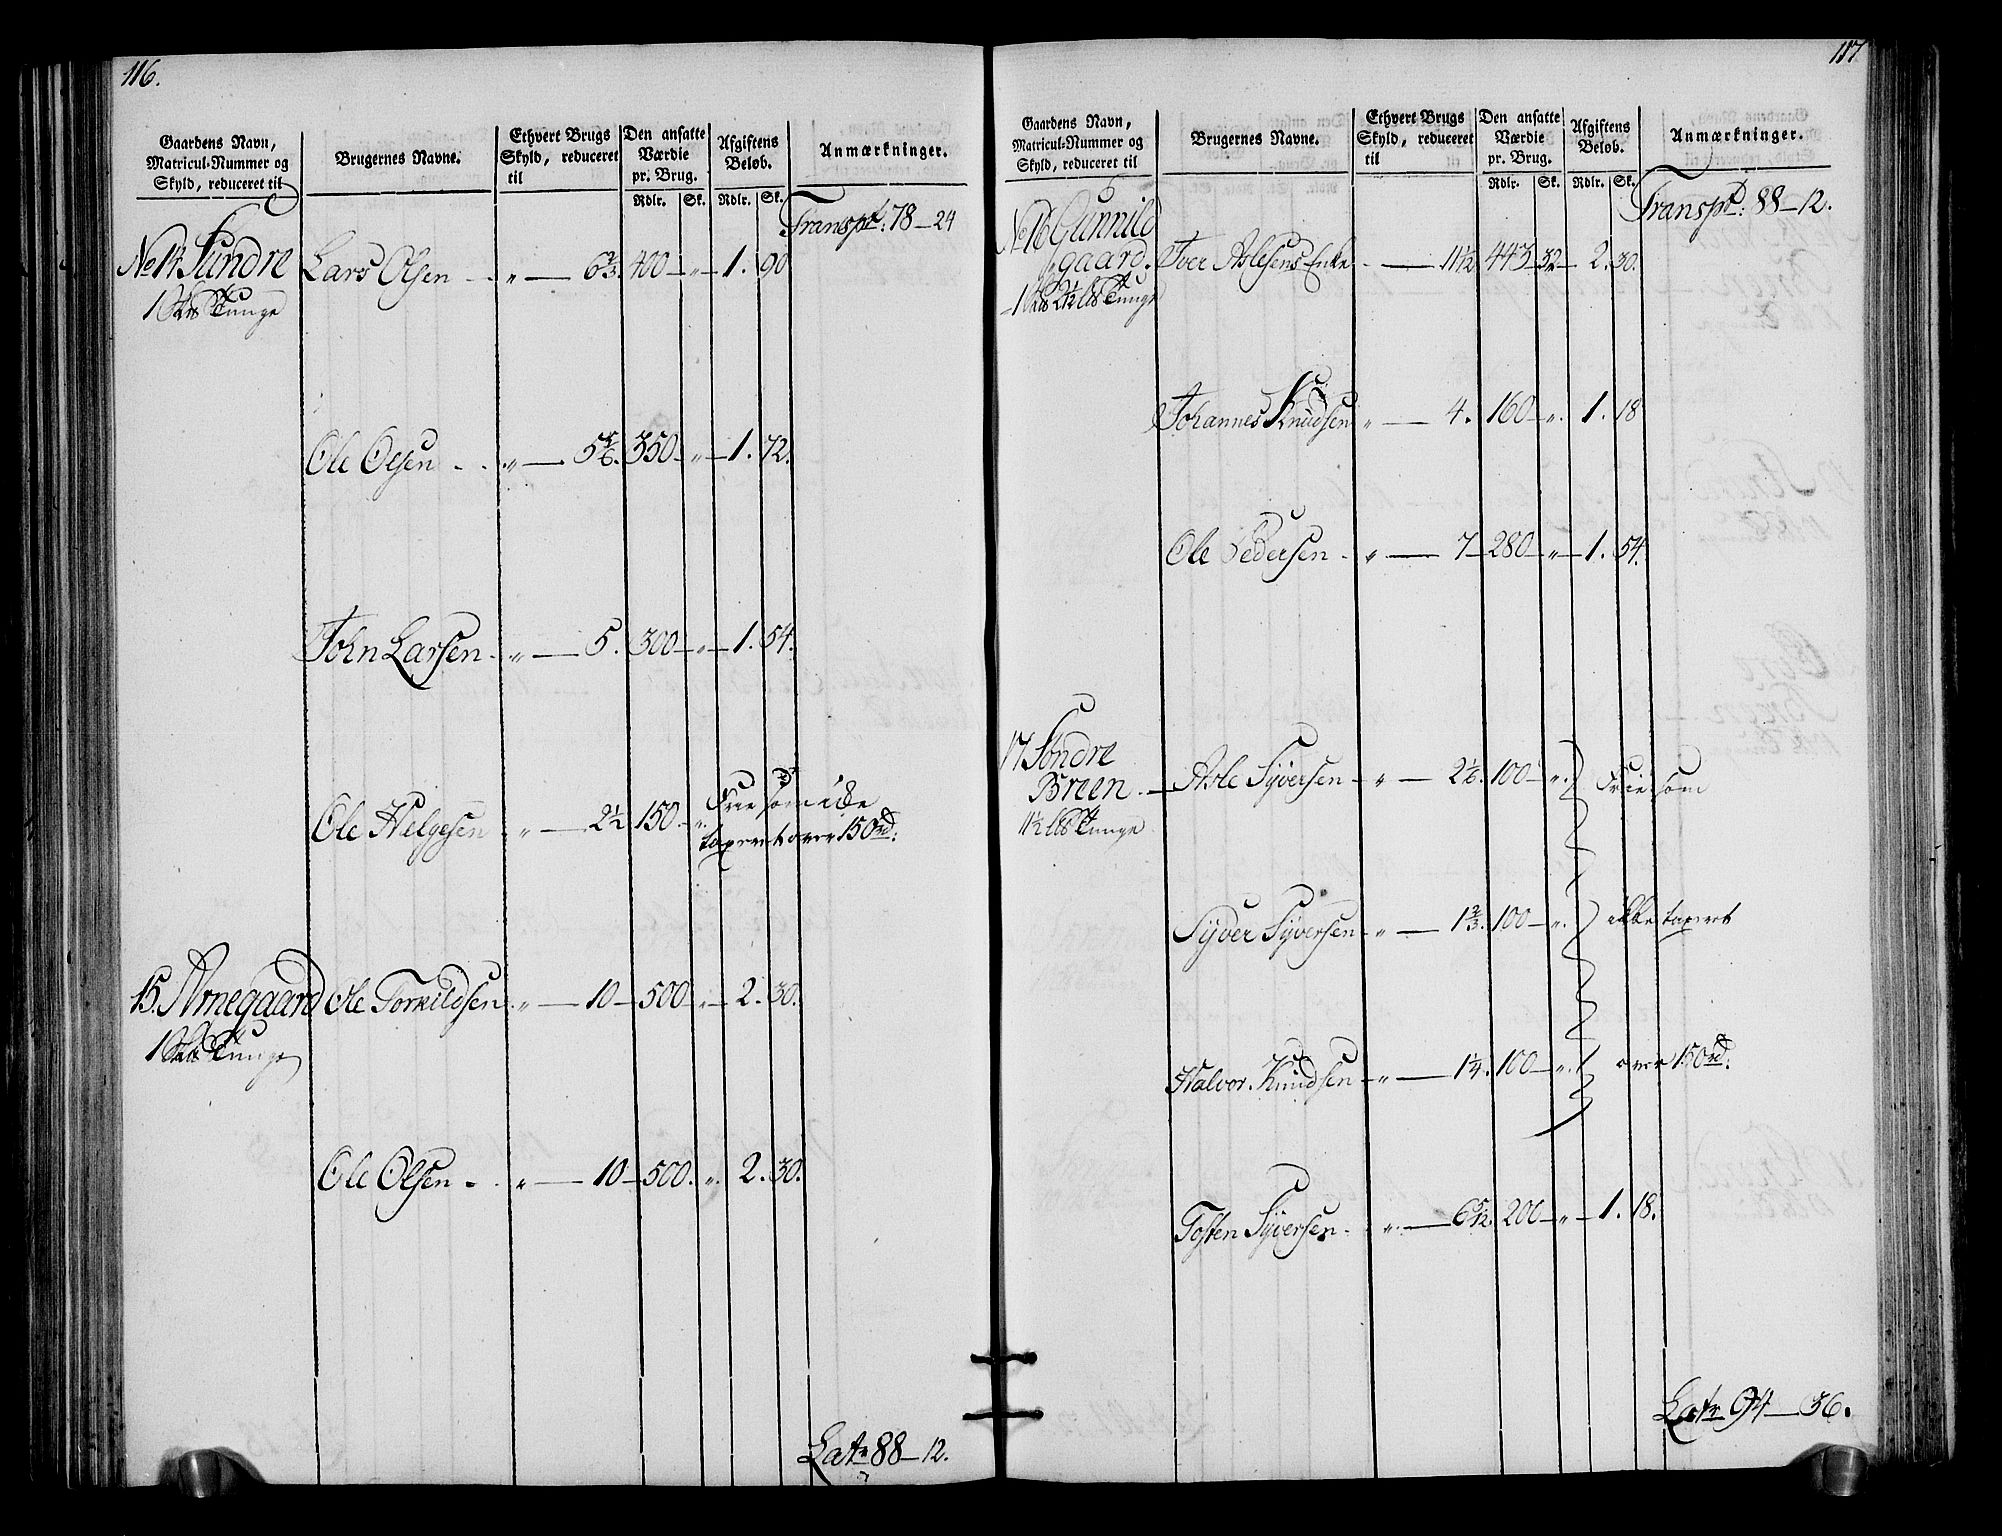 116.
Gaardens Navn, Matricul-Nummer og Skyld, reduceret til
Brugernes Navne.
Ethvert Brugs Skyld, reduceret til
Den ansatte Værdie pr. Brug.
Afgiftens Beløb.
Anmærkninger.
Rdlr. Sk. Rdlr. Sk.
Transpt: 78 — 24
No 14 Sundre Lars Olsen - " — 6 2/3. 400 — " — 1. 90
1 Tunge
Ole Olsen - . " — 5 5/6. 350 — " — 1. 72.
John Larsen - " — 5. 300 — " — 1. 54.
Ole Helgesen " — 2 1/2 150. " Frie som icke
taxeret over 150 rd:
15. Arnegaard Ole Torkildsen " — 10 — 500 " — 2. 30.
1 Tunge
Ole Olsen - . " — 10 — 500. " 2. 30.
Lat. 88 — 12.
117
Gaardens Navn, Matricul-Nummer og Skyld, reduceret til
Brugernes Navne.
Ethvert Brugs Skyld, reduceret til
Den ansatte Værdie pr. Brug.
Afgiftens Beløb.
Anmærkninger.
Rdlr. Sk. Rdlr. Sk.
Transpt: 88 — 12.
No 16 Gunnild
gaard. Iver Aslesens Enke - — 11 1/2 443 32 — 2. 30.
1 2 1/2 Tunge
Johannes Knudsen " — 4. 160 — " 1. 18
Ole Pedersen - " — 7 — 280 — " — 1. 54.
17 Søndre
Breen. — Asle Syversen - " — 2 1/6. 100 — " Frie som
11 1/2 Tunge
Syver Syversen - " — 1 2/3. 100 — " ikke taxeret
Halvor Knudsen - " — 1 1/4. 100 — " over 150 rd:
Tosten Syversen - " — 6 5/12. 200 — " — 1. 18.
Lat. 94 — 36.